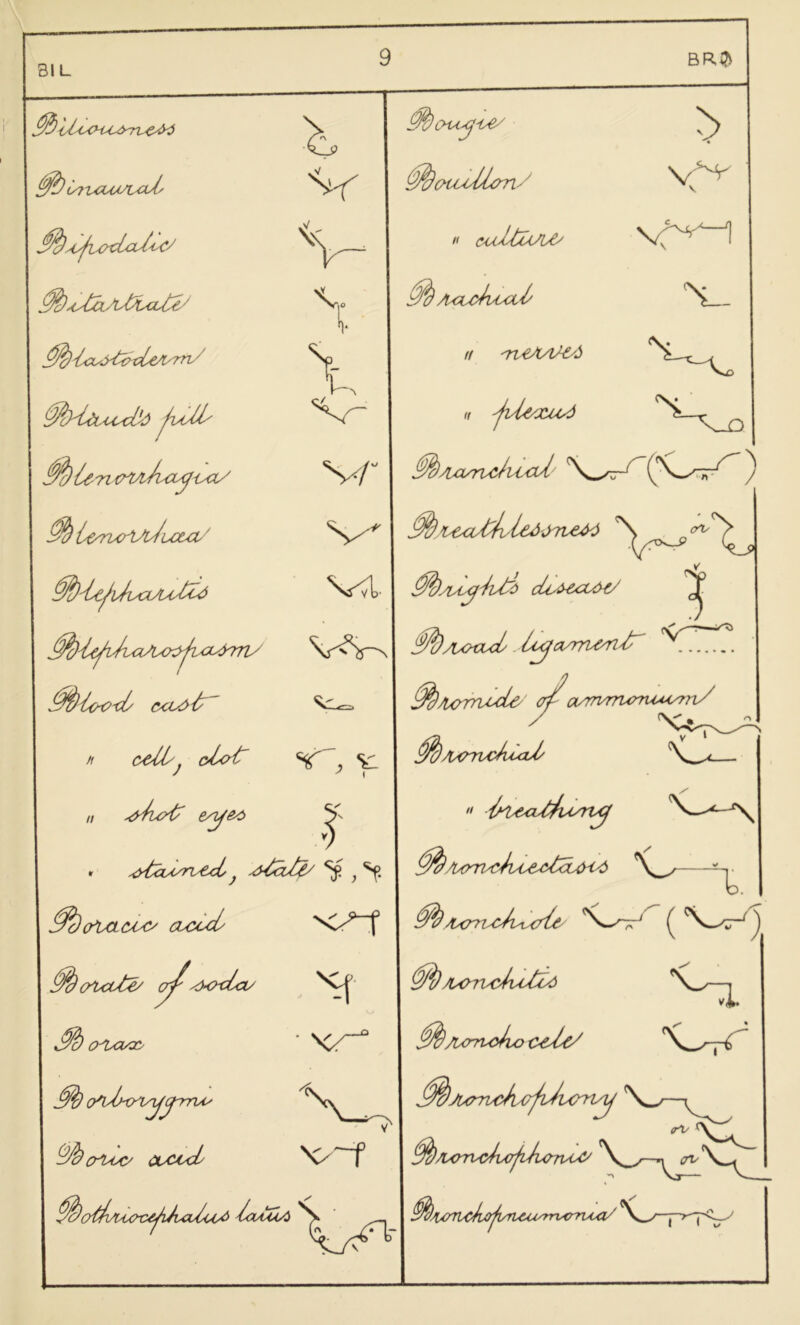 BIL
9
BRO
Biliousness
Binaural
Bipodalic
Bistartrate
Blastoderm
Blaud's pill
Blenorrhagia
Blenorrhoea
Blepharitis
Blepharospasm
Blood cast
" cell, clot
" shot eyes
" stained, state
Boracic acid
Borate of soda
Borax
Borborygmi
Boric acid
Bothriocephalus latus
Bougie
Bouillon
" culture
Brachial
" nerves
" plexus
Branchial
Breathlessness or
Bright's disease
Broad Ligament
Bromide of ammonium
Bronchial
" breathing
Bronchiectasis
Bronchiole
Bronchitis
Bronchocele
Bronchophony or
Bronchophonic or
Bronchopneumonia